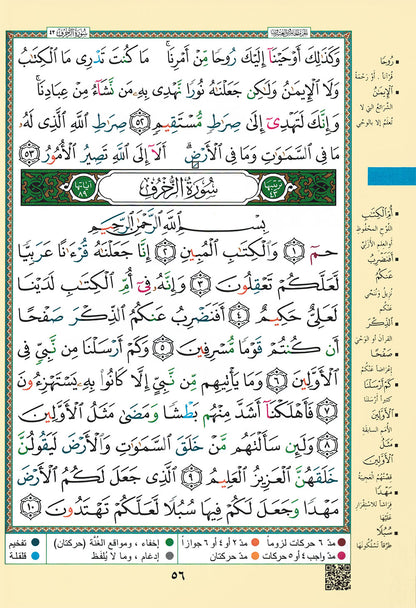 سورة الزخرف ٤٣
وَكَذَٰلِكَ أَوْحَيْنَآ إِلَيْكَ رُوحًا مِّنْ أَمْرِنَا ۚ مَا كُنتَ تَدْرِى مَا ٱلْكِتَٰبُ
وَلَا ٱلْإِيمَٰنُ وَلَٰكِن جَعَلْنَٰهُ نُورًا نَّهْدِى بِهِۦ مَن نَّشَآءُ مِنْ عِبَادِنَا ۚ
وَإِنَّكَ لَتَهْدِىٓ إِلَىٰ صِرَٰطٍ مُّسْتَقِيمٍ ٥٢ صِرَٰطِ ٱللَّهِ ٱلَّذِى لَهُۥ
مَا فِى ٱلسَّمَٰوَٰتِ وَمَا فِى ٱلْأَرْضِ ۗ أَلَآ إِلَى ٱللَّهِ تَصِيرُ ٱلْأُمُورُ ٥٣
ترتيبها ٤٣ سُورَةُ الزُّخْرُفِ آياتها ٨٩
بِسْمِ ٱللَّهِ ٱلرَّحْمَٰنِ ٱلرَّحِيمِ
حمٓ ١ وَٱلْكِتَٰبِ ٱلْمُبِينِ ٢ إِنَّا جَعَلْنَٰهُ قُرْءَٰنًا عَرَبِيًّا
لَّعَلَّكُمْ تَعْقِلُونَ ٣ وَإِنَّهُۥ فِىٓ أُمِّ ٱلْكِتَٰبِ لَدَيْنَا
لَعَلِىٌّ حَكِيمٌ ٤ أَفَنَضْرِبُ عَنكُمُ ٱلذِّكْرَ صَفْحًا
أَن كُنتُمْ قَوْمًا مُّسْرِفِينَ ٥ وَكَمْ أَرْسَلْنَا مِن نَّبِىٍّ فِى
ٱلْأَوَّلِينَ ٦ وَمَا يَأْتِيهِم مِّن نَّبِىٍّ إِلَّا كَانُوا۟ بِهِۦ يَسْتَهْزِءُونَ
٧ فَأَهْلَكْنَآ أَشَدَّ مِنْهُم بَطْشًا وَمَضَىٰ مَثَلُ ٱلْأَوَّلِينَ
٨ وَلَئِن سَأَلْتَهُم مَّنْ خَلَقَ ٱلسَّمَٰوَٰتِ وَٱلْأَرْضَ لَيَقُولُنَّ
خَلَقَهُنَّ ٱلْعَزِيزُ ٱلْعَلِيمُ ٩ ٱلَّذِى جَعَلَ لَكُمُ ٱلْأَرْضَ
مَهْدًا وَجَعَلَ لَكُمْ فِيهَا سُبُلًا لَّعَلَّكُمْ تَهْتَدُونَ ١٠
رُوحًا
قُرْآنًا .. أَوْ رَحْمَةً
الْإِيمَـٰنُ
الشرائع التي لا
تُعلم إلا بالوحي
أُمِّ الْكِتَـٰبِ
اللوح المحفوظ
أو العلم الأزلي
أَفَنَضْرِبُ
عَنكُمُ
نترك وننحّي
عنكم
الذِّكْرَ
القرآن أو الوحي
صَفْحًا
إعراضًا عنكم
كَمْ أَرْسَلْنَا
كثيرًا أرسلنا
الْأَوَّلِينَ
الأمم السابقة
مَثَلُ
الْأَوَّلِينَ
قصتهم العجيبة
مَهْدًا
فراشًا للاستقرار
عليها
سُبُلًا
طرقًا تسلكونها
مدّ ٦ حركات لزوماً مدّ ٢ أو ٤ أو ٦ جوازاً إخفاء ، ومواقع الغُنَّة (حركتان) تفخيم
مدّ واجب ٤ أو ٥ حركات مدّ حركتان إدغام ، وما لا يُلفَظ قلقلة
٥٦